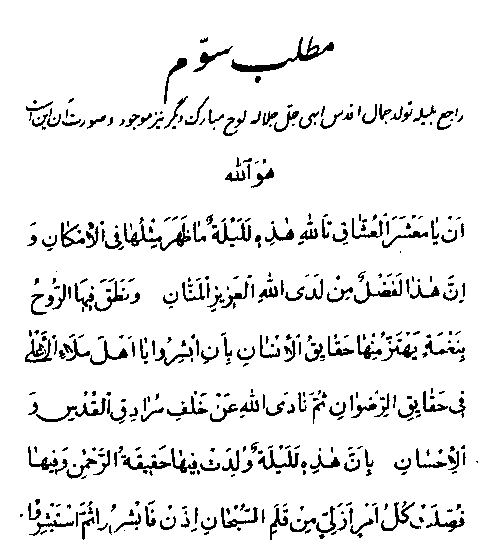 مطلب سوّم
راجع بلیله تولد جمال اقدس ابهی جلّ جلاله لوح مبارک دیگر نیز موجود و صورت آن این است
هُوَ ٱللّٰه
اَنْ یا مَعْشَرَ ٱلْعُشّاقِ تَاللّٰهِ هٰذِهِ لَلَیْلَةٌ ما ظَهَرَ مِثْلُها فِی ٱلْاِمْکانِ وَ
اِنَّ هٰذا لَفَضْلٌ مِنْ لَدَی ٱللّٰهِ ٱلْعَزیزِ ٱلْمَنّانِ وَنَطَقَ فیهَا ٱلرُّوحُ
بِنَغْمَةٍ یَهْتَزُّ مِنْها حَقایِقُ ٱلْاِنْسانِ بِاَنْ اَبْشِرُوا یا اَهْلَ مَلَاءِ ٱلْاَعْلی
فی حَقایِقِ ٱلرِّضْوانِ ثُمَّ نادَی ٱللّٰهُ عَنْ خَلْفِ سُرادِقِ ٱلْقُدْسِ وَ
ٱلْاِحْسانِ بِاَنَّ هٰذِهِ لَلَیْلَةٌ وُلِدَتْ فیها حَقیقَةُ ٱلرَّحْمٰنِ وَفیها
فُصِّلَتْ کُلُّ اَمْرٍ اَزَلِیٍّ مِنْ قَلَمِ ٱلسُّبْحانِ اِذَنْ فَابْشِرُوا ثُمَّ ٱسْتَبْشِرُوا